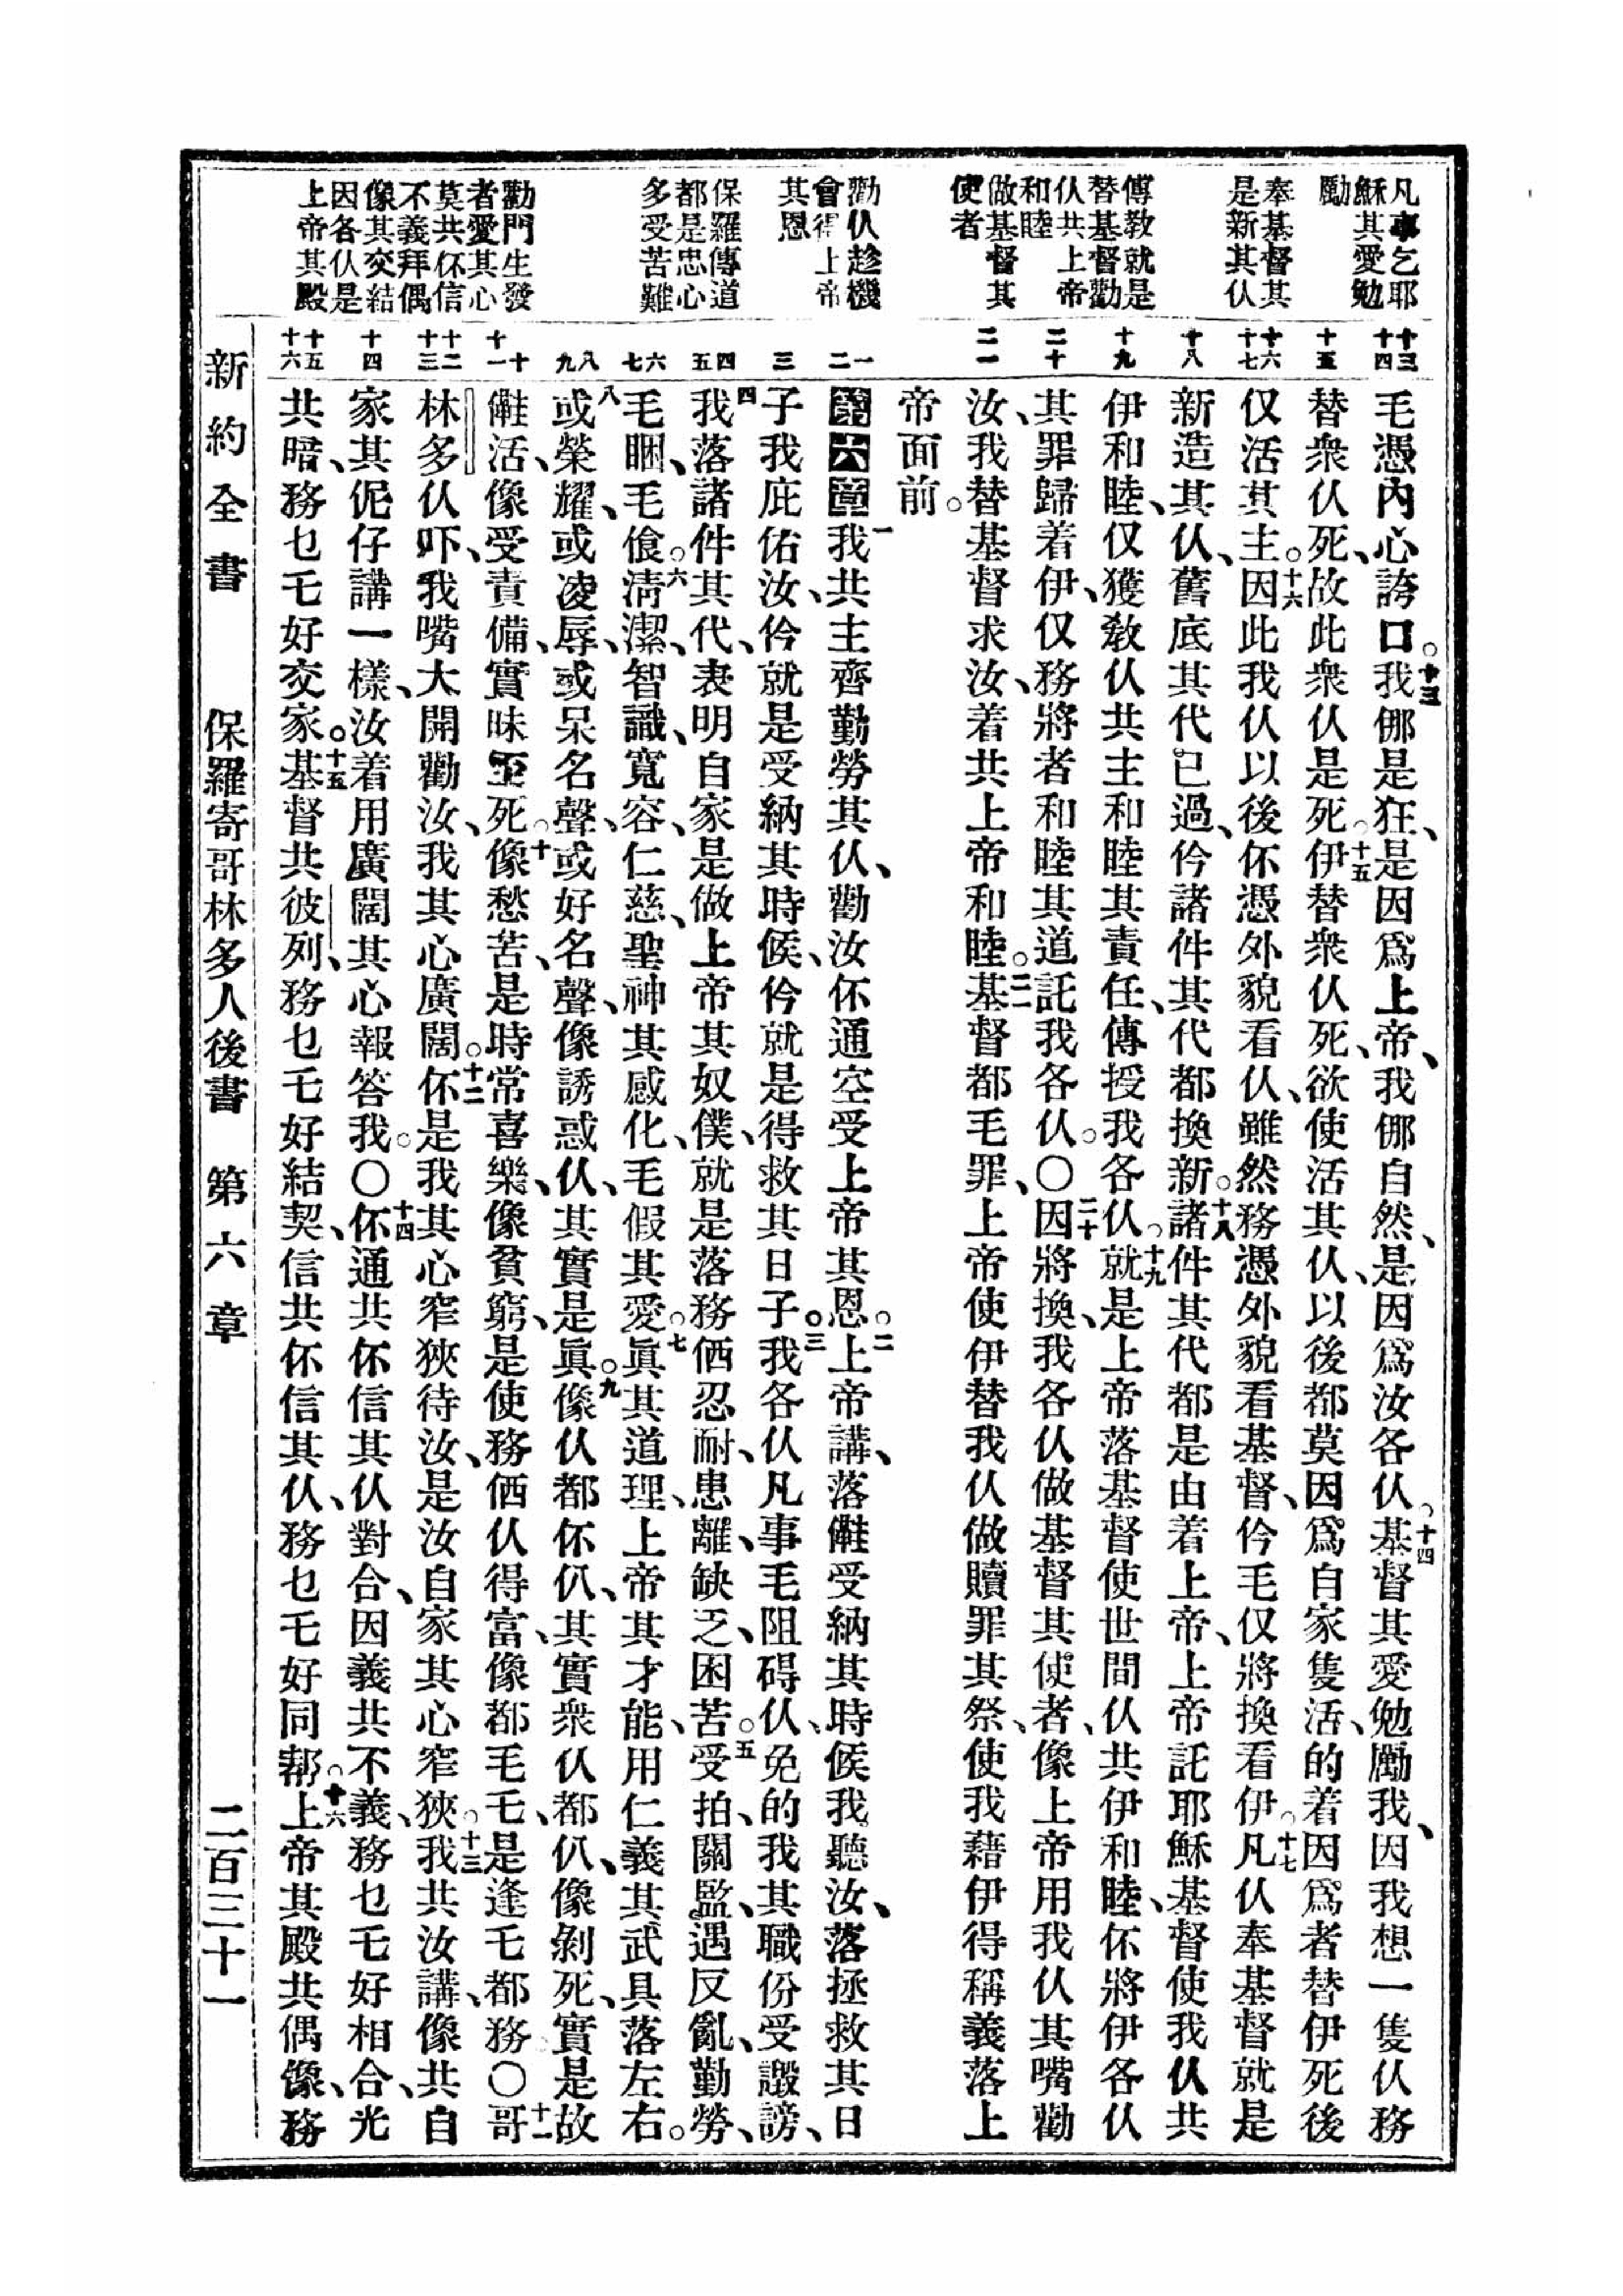 凡事乞耶
穌其愛勉
勵
奉基督其
是新其仈
傳敎就是
替基督勸
仈共上帝
和睦
做基督其
使者
勸仈趁機
會得上帝
其恩
保羅傳道
都是忠心
多受苦難
勸門生發
者愛其心
莫共伓信
不義拜偶
像其交結
因各仈是
上帝其殿
十三 十四
十五
十六 十七
十八
十九
二十
二一
一 二
三
四 五
六 七
八 九
十 十一
十二 十三
十四
十五 十六
毛憑內心誇口。十三我㑚是狂、是因爲上帝、我㑚自然、是因爲汝各仈。十四基督其愛勉勵我、因我想一隻仈務
替衆仈死、故此衆仈是死。十五伊替衆仈死、欲使活其仈、以後都莫因爲自家隻活、的着因爲者替伊死後
仅活其主。十六因此我仈以後伓憑外貌看仈、雖然務憑外貌看基督、伶毛仅將換看伊。十七凡仈奉基督就是
新造其仈、舊底其代已過、伶諸件其代都換新。十八諸件其代都是由着上帝、上帝託耶穌基督使我仈共
伊和睦、仅獲敎仈共主和睦其責任、傳授我各仈。十九就是上帝落基督使世間仈共伊和睦、伓將伊各仈
其罪歸着伊、仅務將者和睦其道託我各仈。〇二十因將換、我各仈做基督其使者、像上帝用我仈其嘴勸
汝、我替基督求汝、着共上帝和睦。二一基督都毛罪、上帝使伊替我仈做贖罪其祭、使我藉伊得稱義落上
帝面前。
第六章一我共主齊勤勞其仈、勸汝伓通空受上帝其恩。二上帝講、落𣍐受納其時候我聽汝、落拯救其日
子我庇佑汝、伶就是受納其時候、伶就是得救其日子。三我各仈凡事毛阻碍仈、免的我其職份受譭謗、
四我落諸件其代、表明自家是做上帝其奴僕、就是落務価忍耐、患離、缺乏、困苦。五受拍、關監、遇反亂、勤勞、
毛睏、毛飡。六淸潔、智識、寬容、仁慈、聖神其感化、毛假其愛。七眞其道理、上帝其才能、用仁義其武具落左右。
八或榮耀、或凌辱、或呆名聲、或好名聲、像誘惑仈、其實是眞。九像仈都伓仈、其實衆仈都仈、像剝死、實是故
活、像受責備、實昧至死。十像愁苦、是時常喜樂、像貧窮、是使務価仈得富、像都毛乇、是逢乇都務。〇十一哥
林多仈吓、我嘴大開勸汝、我其心廣闊。十二伓是我其心窄狹待汝、是汝自家其心窄狹。十三我共汝講、像共自
家其伲仔講一樣、汝着用廣闊其心報答我。〇十四伓通共伓信其仈對合、因義共不義、務乜乇好相合、光
共暗、務乜乇好交家。十五基督共彼列、務乜乇好結契、信共伓信其仈、務乜乇好同帮。十六上帝其殿共偶像、務
新約全書 保羅寄哥林多人後書 第六章 二百三十一